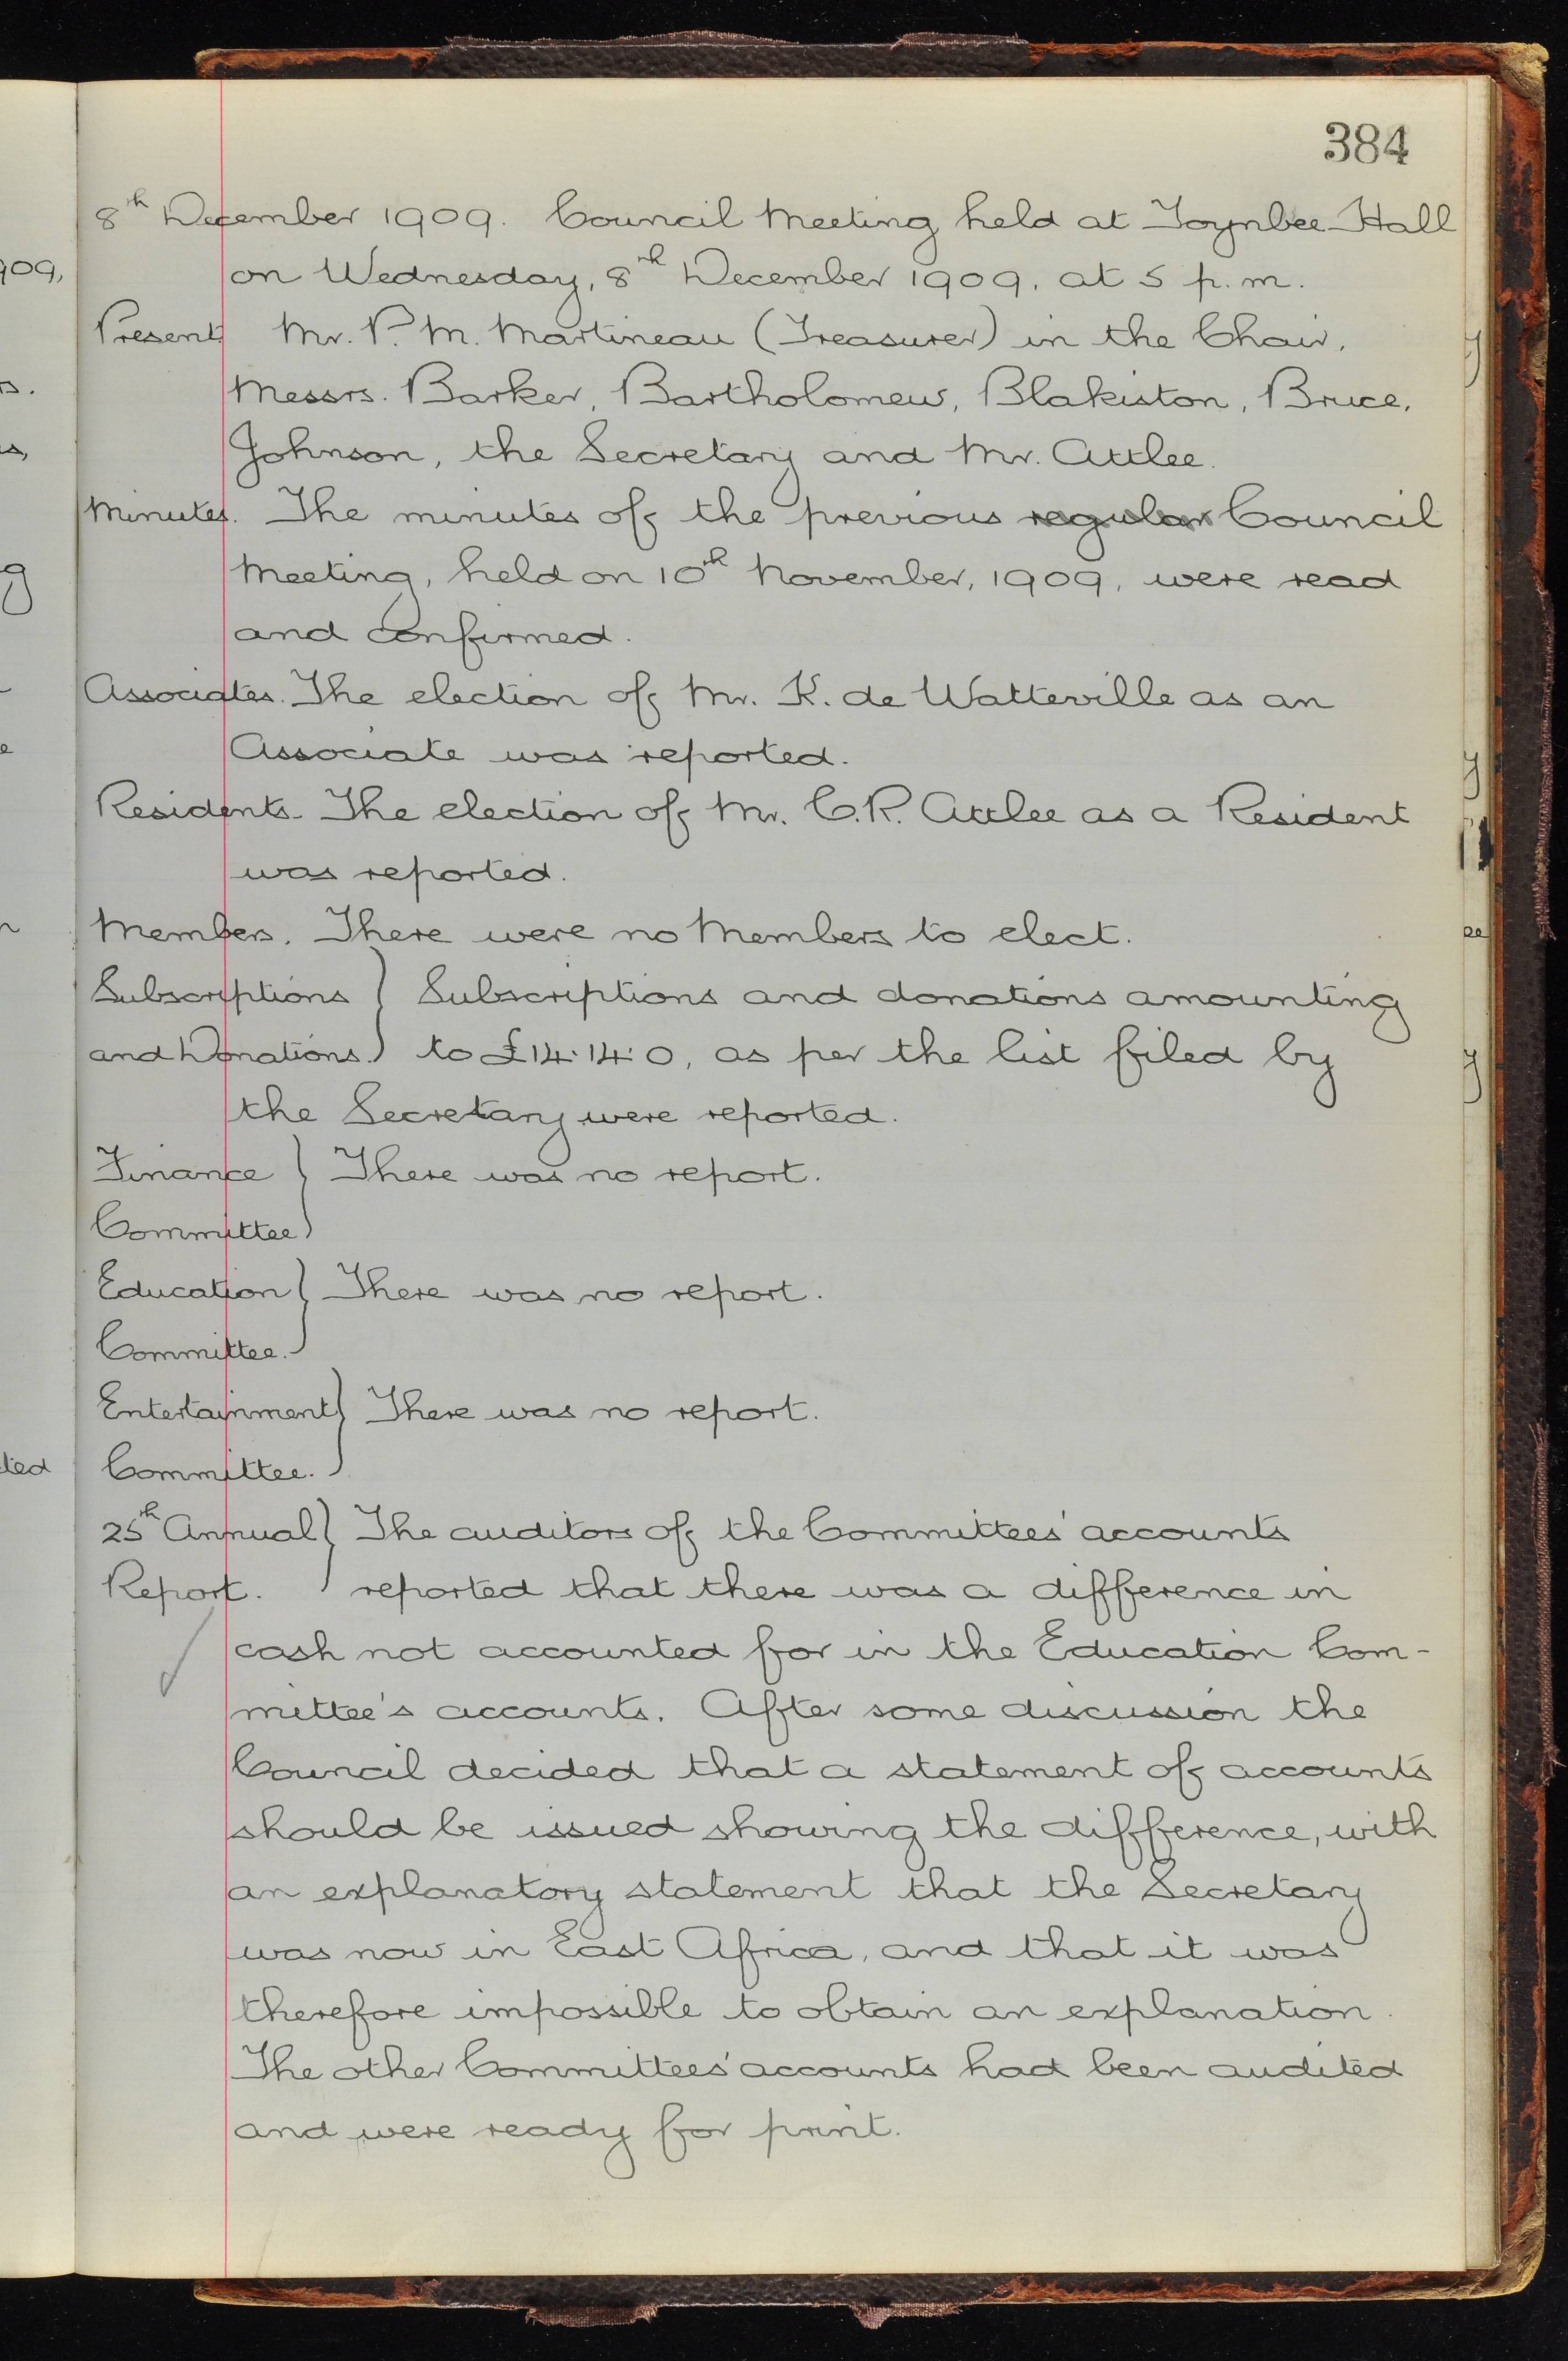 384
8th December 1909. Council Meeting held at Toynbee Hall
on Wednesday, 8th December 1909, at 5 p.m.
Present Mr. P. M. Martineau (Treasurer) in the Chair,
Messrs. Barker, Bartholomew, Blakiston, Bruce,
Johnson, the Secretary and Mr. Attlee.
Minutes. The minutes of the previous regular Council
Meeting, held on 10th November, 1909, were read
and confirmed.
Associates. The election of Mr. K. de Watteville as an
Associate was reported.
Residents. The election of Mr. C.R. Attlee as a Resident
was reported.
Members. There were no Members to elect.
Subscriptions } Subscriptions and donations amounting
and Donations } to £14.14.0, as per the list filed by
the Secretary were reported.
Finance } There was no report.
Committee }
Education } There was no report.
Committee. }
Entertainment } There was no report.
Committee. }
25th Annual } The auditors of the Committees' accounts
Report. } reported that there was a difference in
cash not accounted for in the Education Com-
mittee's accounts. After some discussion the
Council decided that a statement of accounts
should be issued showing the difference, with
an explanatory statement that the Secretary
was now in East Africa, and that it was
therefore impossible to obtain an explanation.
The other Committees' accounts had been audited
and were ready for print.